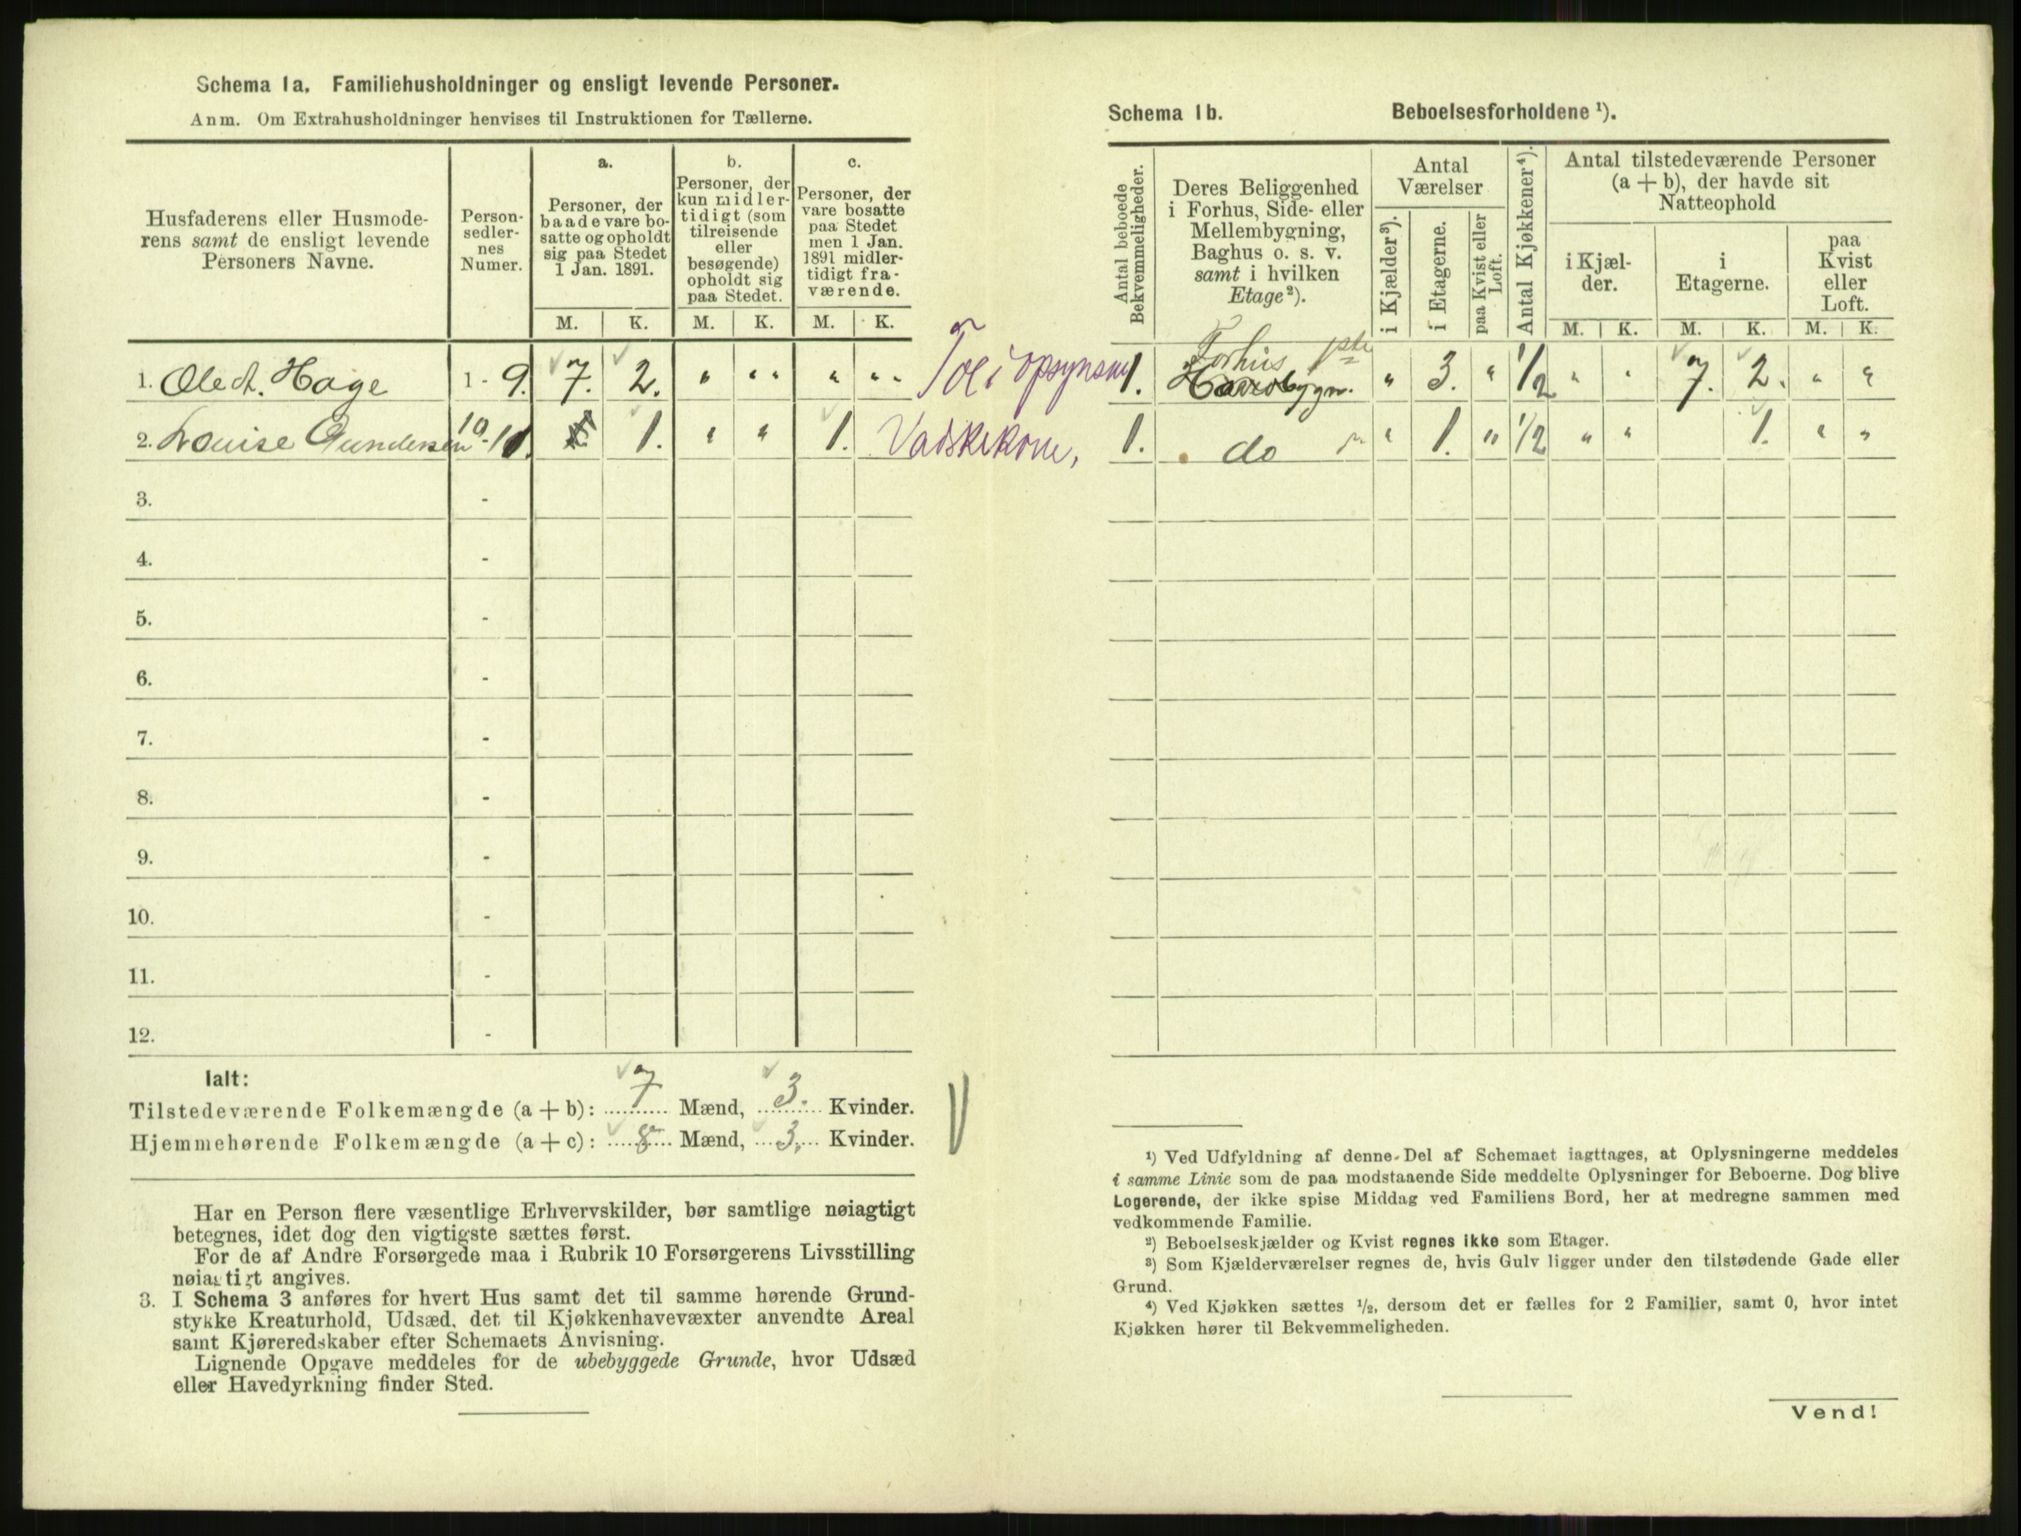 Schema 1a. Familiehusholdninger og ensligt levende Personer.
Anm. Om Extrahusholdninger henvises til Instruktionen for Tællerne.
Husfaderens eller Husmode-
rens samt de ensligt levende
Personers Navne.
Person-
sedler-
nes
Numer.
a.
Personer, der
baade vare bo-
satte og opholdt
sig paa Stedet
1 Jan. 1891.
b.
Personer, der
kun midler-
tidigt (som
tilreisende
eller
besøgende)
opholdt sig
paa Stedet.
c.
Personer, der
vare bosatte
paa Stedet
men 1 Jan.
1891 midler-
tidigt fra-
værende.
M. K. M. K. M. K.
1. Ole A. Hage 1 - 9. 7. 2. " " " " " " Toldopsynsm
2. Louise Gundersen 10 - 11. 1. " " 1. Vaskekone,
3. -
4. -
5. -
6. -
7. -
8. -
9. -
10. -
11. -
12. -
Ialt:
Tilstedeværende Folkemængde (a + b): 7 Mænd, 3. Kvinder.
Hjemmehørende Folkemængde (a + c): 8 Mænd, 3. Kvinder.
Har en Person flere væsentlige Erhvervskilder, bør samtlige nøiagtigt
betegnes, idet dog den vigtigste sættes først.
For de af Andre Forsørgede maa i Rubrik 10 Forsørgerens Livsstilling
nøiagtigt angives.
3. I Schema 3 anføres for hvert Hus samt det til samme hørende Grund-
stykke Kreaturhold, Udsæd, det til Kjøkkenhavevæxter anvendte Areal
samt Kjøreredskaber efter Schemaets Anvisning.
Lignende Opgave meddeles for de ubebyggede Grunde, hvor Udsæd
eller Havedyrkning finder Sted.
Schema 1b. Beboelsesforholdene ¹).
Antal beboede
Bekvemmeligheder.
Deres Beliggenhed
i Forhus, Side- eller
Mellembygning,
Baghus o. s. v.
samt i hvilken
Etage²).
Antal
Værelser
i Kjælder³).
i Etagerne.
paa Kvist eller
Loft.
Antal Kjøkkener⁴).
Antal tilstedeværende Personer
(a + b), der havde sit
Natteophold
i Kjæl-
der.
i
Etagerne.
paa
Kvist
eller
Loft.
M. K. M. K. M. K.
Forhus 1ste
1. " 3. " 1/2 " " 7. 2. " "
1. do " " 1. " 1/2 " " 1. " "
¹) Ved Udfyldning af denne Del af Schemaet iagttages, at Oplysningerne meddeles
i samme Linie som de paa modstaaende Side meddelte Oplysninger for Beboerne. Dog blive
Logerende, der ikke spise Middag ved Familiens Bord, her at medregne sammen med
vedkommende Familie.
²) Beboelseskjælder og Kvist regnes ikke som Etager.
³) Som Kjælderværelser regnes de, hvis Gulv ligger under den tilstødende Gade eller
Grund.
⁴) Ved Kjøkken sættes ½, dersom det er fælles for 2 Familier, samt 0, hvor intet
Kjøkken hører til Bekvemmeligheden.
Vend!